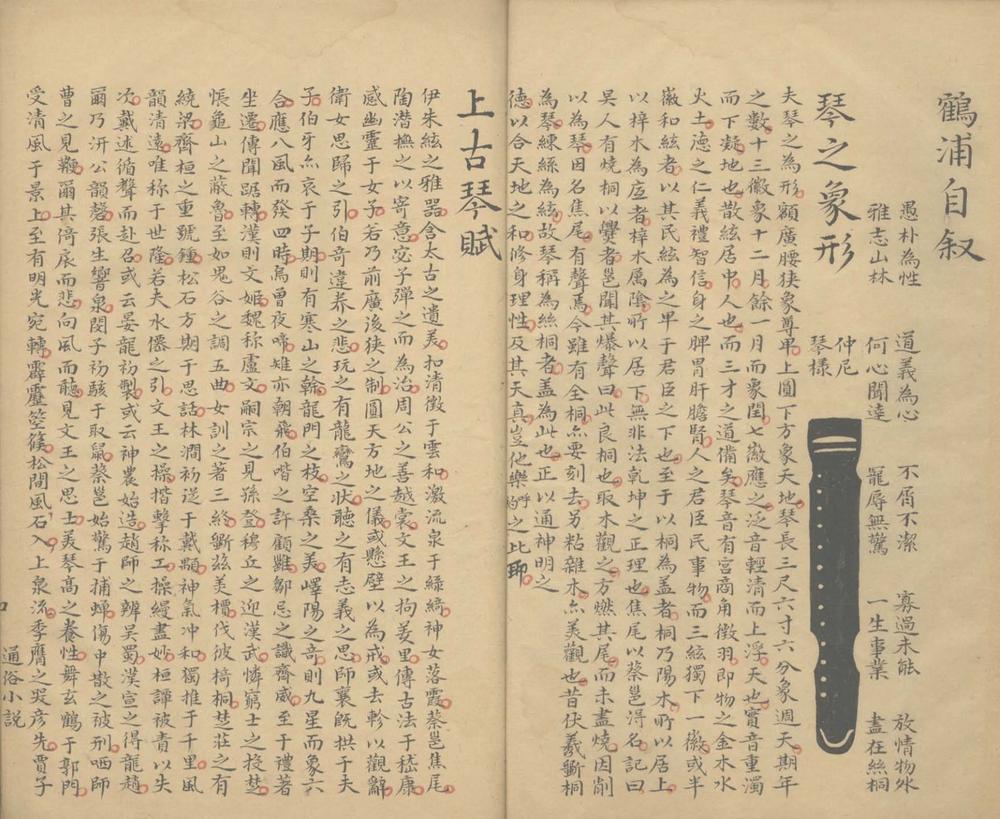 鶴浦自叙
愚朴為性 道義為心 不屑不潔 寡過未能 放情物外
雅志山林 何心聞達 寵辱無驚 一生事業 盡在絲桐
琴之象形 仲尼
琴樣
夫琴之為形額廣腰狹象尊卑上圓下方象天地琴長三尺六寸六分象週天期年
之數十三徽象十二月餘一月而象閏七徽應之泛音輕清而上浮天也實音重濁
而下凝地也散絃居中人也而三才之道備矣琴音有宮商角徵羽即物之金木水
火土德之仁義禮智信身之脾胃肝膽腎人之君臣民事物而三絃獨下一徽或半
徽和絃者以其民絃為之卑于君臣之下也至于以桐為盖者桐乃陽木所以居上
以梓木為底者梓木属陰所以居下無非法乾坤之正理也焦尾以蔡邕得名記曰
吴人有燒桐以爨者邕聞其爆聲曰此良桐也取木觀之方燃其尾而未盡燒因削
以為琴因名焦尾有聲焉今雖有全桐亦要刻去另粘雜木亦美觀也昔伏羲斵桐
為琴練絲為絃故琴稱為絲桐者盖為此也正以通神明之
德以合天地之和修身理性反其天真豈他樂呼約之比耶
上古琴賦
伊朱絃之雅器含太古之遺美扣清徵于雲和激流泉于緑綺神女落霞蔡邕焦尾
陶潜撫之以寄意宓子彈之而為治周公之善越裳文王之拘羑里傳古法于嵇康
感幽靈于女子若乃前廣後狹之制圓天方地之儀或懸壁以為戒或去軫以觀辭
衛女思歸之引伯奇違养之悲玩之有龍鸞之状聽之有志義之思師襄既拱于夫
子伯牙亦哀于子期則有寒山之榦龍門之枝空桑之美嶧陽之奇則九星而象六
合應八風而發四時烏曽夜啼雉亦朝飛伯喈之許顧雖鄒忌之識齊威至于禮著
坐遷傳聞踞轉漢則文姬魏称盧文嗣宗之見孫登穆丘之迎漢武憐窮士之投楚
悵龜山之蔽魯至如鬼谷之調五曲女訓之著三終斵兹美檟伐彼椅桐楚莊之有
繞梁齊桓之重號鍾松石方期于思話林澗初送于戴顒神氣冲和獨推于千里風
韻清遠唯称于世隆若夫水僊之引文王之操揩擊称工操縵盡妙桓譚被責以失
次戴述循聲而赴召或云晏龍初製或云神農始造趙師之辨吴蜀漢宣之得龍趙
爾乃汧公韻磬張生響泉閔子初駭于取鼠蔡邕始驚于捕蟬傷中散之被刑哂師
曹之見鞭爾其倚扆而悲向風而聽見文王之思士美琴高之養性舞玄鶴于郭門
受清風于景上至有明光宛轉霹靂箜篌松間風石入上泉流季鷹之哭彦先賈子
通俗小説